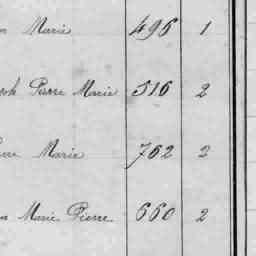 Marie 496 1
Pierre Marie 516 2
Marie 762 2
Marie Pierre 660 2